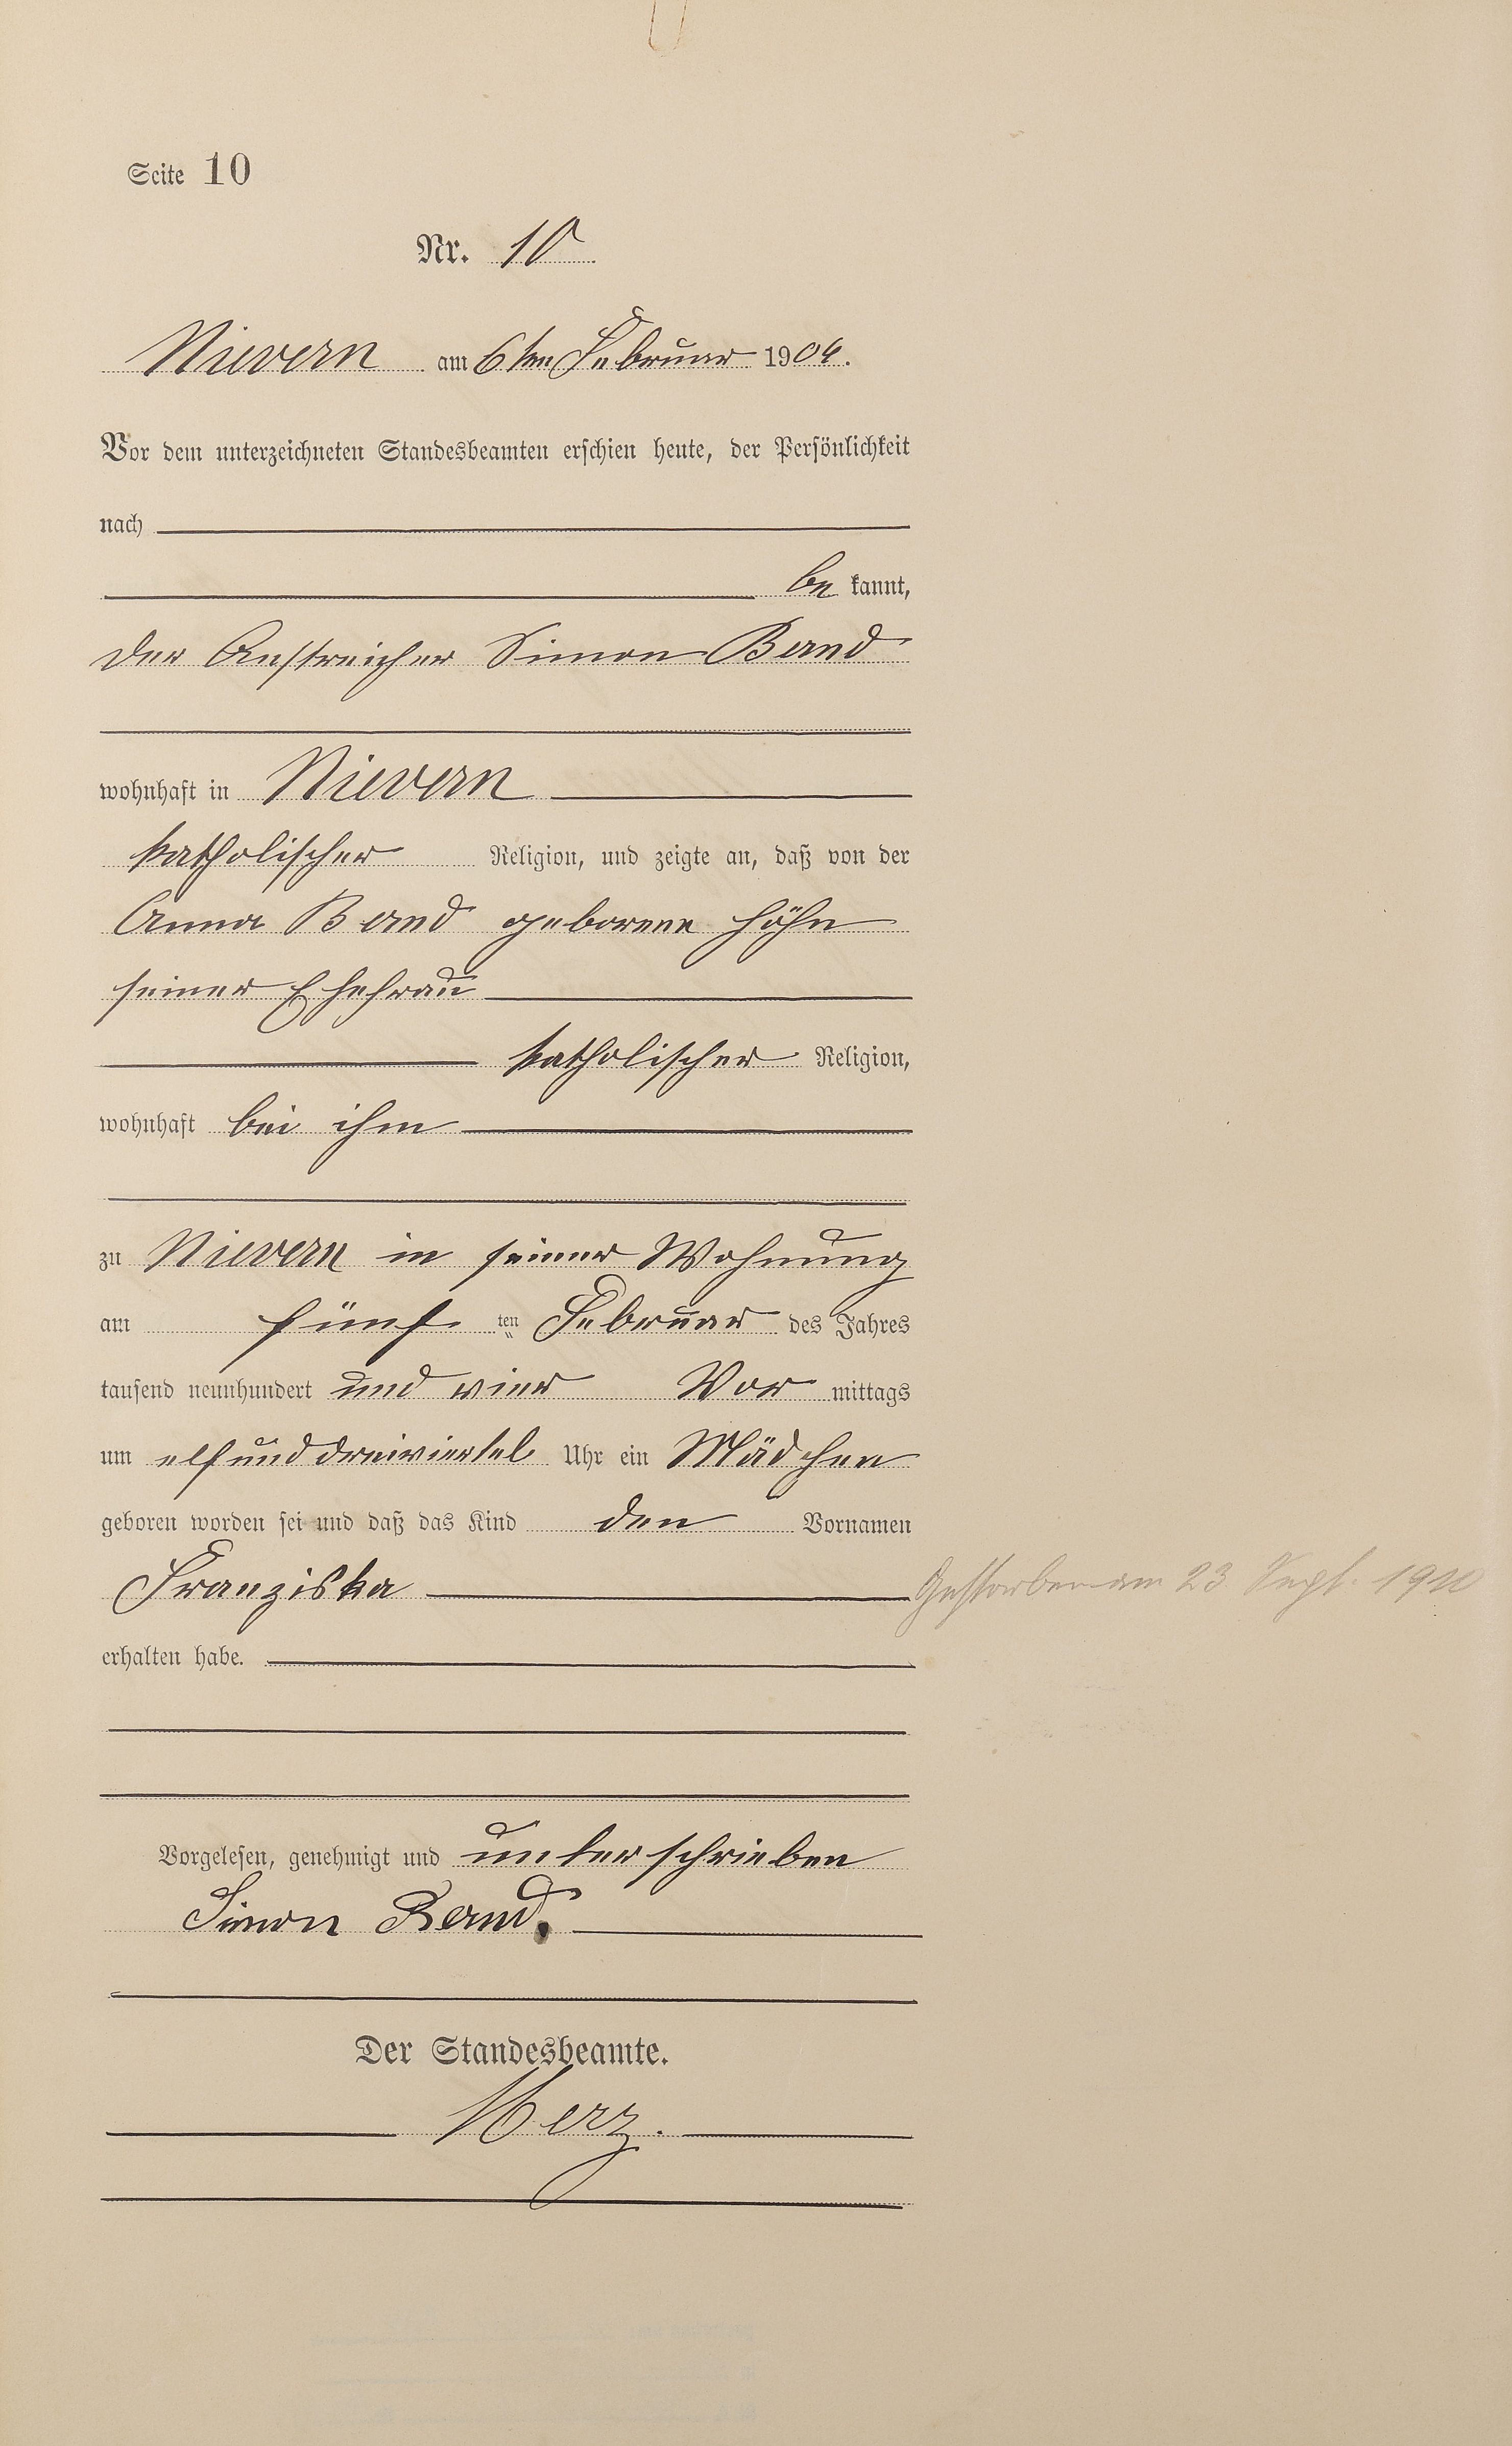 Seite 10
Nr. 10
Nievern am 6ten Februar 1904.
Vor dem unterzeichneten Standesbeamten erschien heute, der Persönlichkeit
nach
be kannt,
der Anstreicher Simon Band
wohnhaft in Nievern
katholischer Religion, und zeigte an, daß von der
Anna Band geborene Höhn
seiner Ehefrau
katholischer Religion,
wohnhaft bei ihm
zu Nievern in seiner Wohnung
am fünf ten Februar des Jahres
tausend neunhundert und vier Vor mittags
um elfunddreiviertel Uhr ein Mädchen
geboren worden sei und daß das Kind den Vornamen
Franziska Gestorben am 23 Sept.
erhalten habe.
Vorgelesen, genehmigt und unterschrieben
Simon Band.
Der Standesbeamte.
Merz.